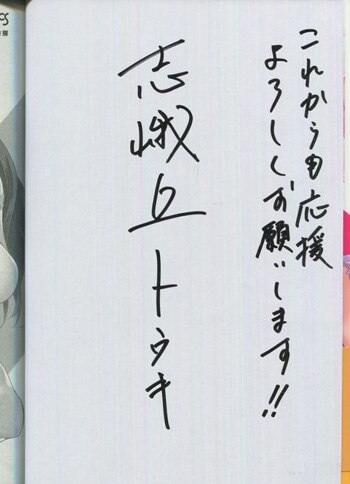 これからも応援
よろしくお願いします!!
志峨丘トウキ